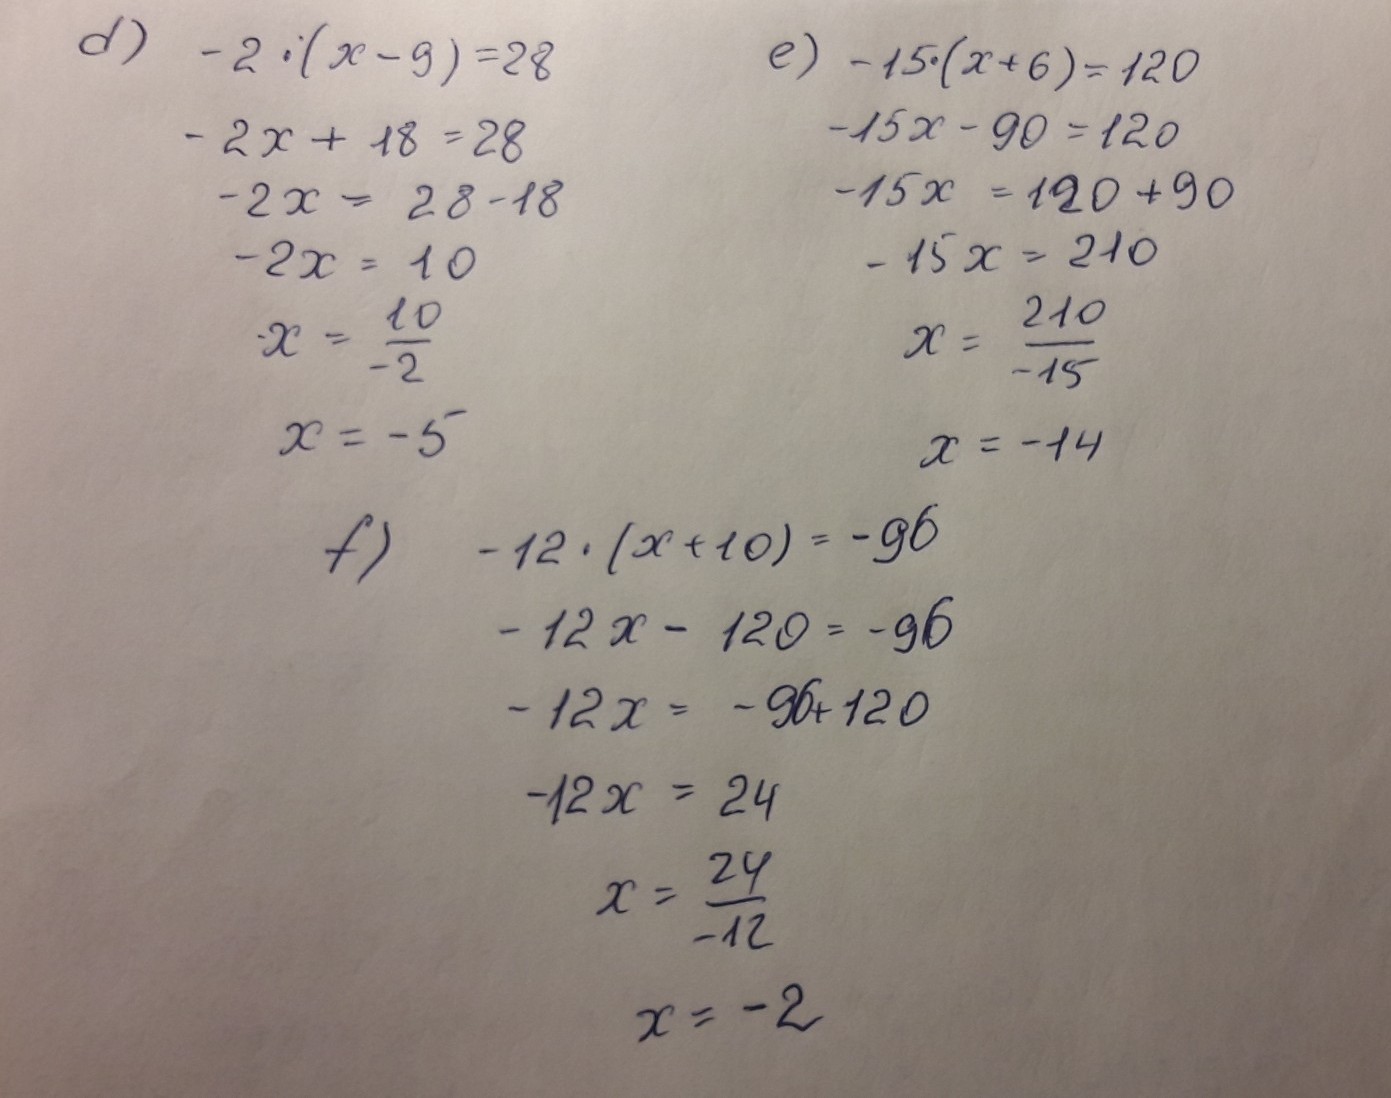 d) -2·(x-9)=28
-2x + 18 =28
-2x = 28-18
-2x = 10
x = 10/-2
x = -5
e) -15·(x+6)=120
-15x - 90 =120
-15x =120 +90
-15x = 210
x = 210/-15
x = -14
f) -12·(x+10) = -96
-12x - 120 = -96
-12x = -96+120
-12x = 24
x = 24/-12
x = -2